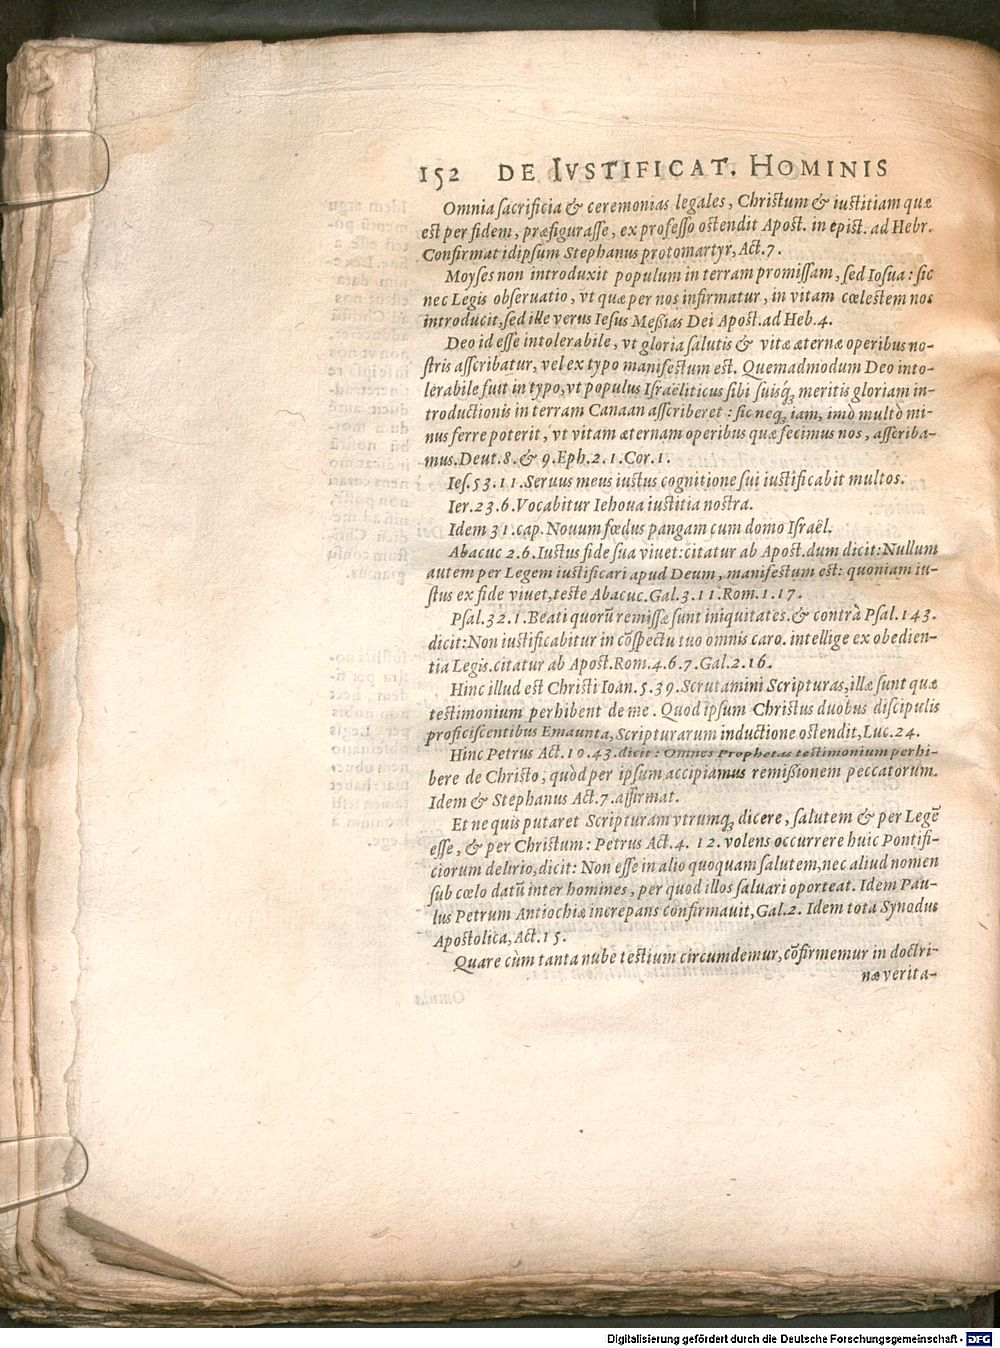 152 DE IVSTIFICAT. HOMINIS
Omnia sacrificia & ceremonias legales, Christum & iustitiam quæ
est per fidem, præfigurasse, ex professo ostendit Apost. in epist. ad Hebr.
Confirmat idipsum Stephanus protomartyr, Act. 7.
Moyses non introduxit populum in terram promissam, sed Iosua: sic
nec Legis obseruatio, vt quæ per nos infirmatur, in vitam cœlestem nos
introducit, sed ille verus Iesus Meßias Dei Apost. ad Heb. 4.
Deo id esse intolerabile, vt gloria salutis & vitæ æternæ operibus no-
stris asscribatur, vel ex typo manifestum est. Quemadmodum Deo into-
lerabile fuit in typo, vt populus Israëliticus sibi suisq́ꝫ meritis gloriam in-
troductionis in terram Canaan asscriberet: sic neqꝫ iam, imò multò mi-
nus ferre poterit, vt vitam æternam operibus quæ fecimus nos, asscriba-
mus. Deut. 8. & 9. Eph. 2. 1. Cor. 1.
Ies. 53. 11. Seruus meus iustus cognitione sui iustificabit multos.
Ier. 23. 6. Vocabitur Iehoua iustitia nostra.
Idem 31. cap. Nouum fœdus pangam cum domo Israël.
Abacuc 2. 6. Iustus fide sua viuet: citatur ab Apost. dum dicit: Nullum
autem per Legem iustificari apud Deum, manifestum est: quoniam iu-
stus ex fide viuet, teste Abacuc. Gal. 3. 11. Rom. 1. 17.
Psal. 32. 1. Beati quorū remissæ sunt iniquitates. & contrà Psal. 143.
dicit: Non iustificabitur in cōspectu tuo omnis caro. intellige ex obedien-
tia Legis. citatur ab Apost. Rom. 4. 6. 7. Gal. 2. 16.
Hinc illud est Christi Ioan. 5. 39. Scrutamini Scripturas, illæ sunt quæ
testimonium perhibent de me. Quod ipsum Christus duobus discipulis
proficiscentibus Emaunta, Scripturarum inductione ostendit, Luc. 24.
Hinc Petrus Act. 10. 43. dicit: Omnes Prophetas testimonium perhi-
bere de Christo, quòd per ipsum accipiamus remißionem peccatorum.
Idem & Stephanus Act. 7. affirmat.
Et ne quis putaret Scripturam vtrumqꝫ dicere, salutem & per Legē
esse, & per Christum: Petrus Act. 4. 12. volens occurrere huic Pontifi-
ciorum delirio, dicit: Non esse in alio quoquam salutem, nec aliud nomen
sub cœlo datū inter homines, per quod illos saluari oporteat. Idem Pau-
lus Petrum Antiochiæ increpans confirmauit, Gal. 2. Idem tota Synodus
Apostolica, Act. 15.
Quare cùm tanta nube testium circumdemur, cōfirmemur in doctri-
næ verita-
Digitalisierung gefördert durch die Deutsche Forschungsgemeinschaft - DFG